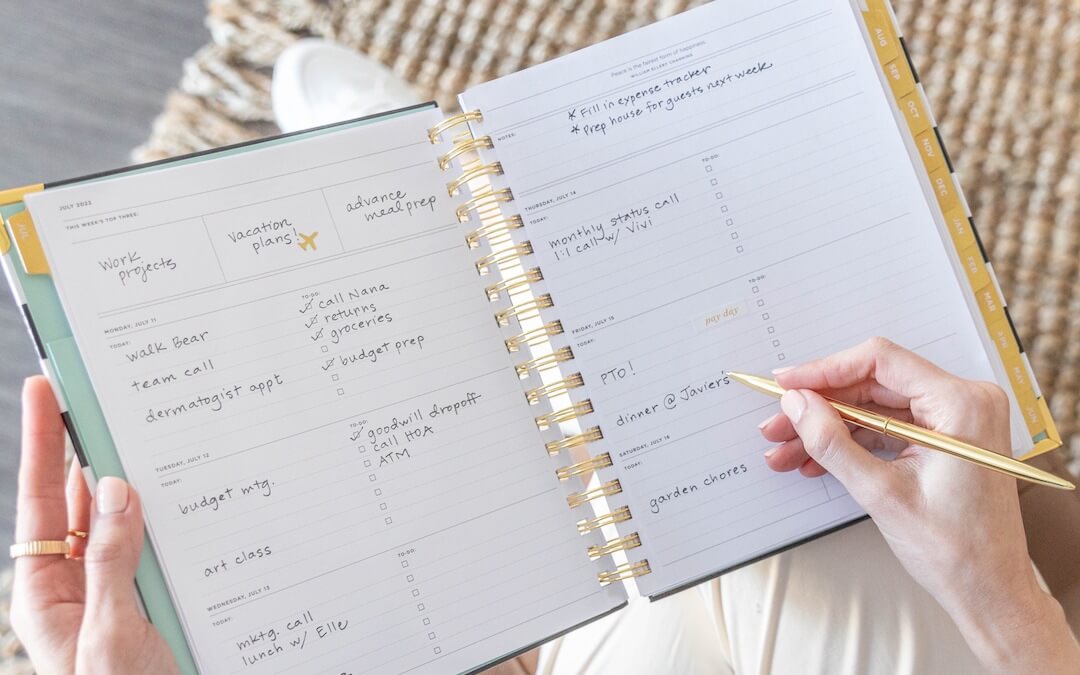 JULY 2022
THIS WEEK'S TOP THREE:
Work
projects
vacation
plans!
advance
meal prep
MONDAY, JULY 11
TODAY:
walk Bear
team call
dermatologist appt
TO-DO:
call Nana
returns
groceries
budget prep
TUESDAY, JULY 12
TODAY:
budget mtg.
art class
TO-DO:
goodwill dropoff
call HOA
ATM
WEDNESDAY, JULY 13
TODAY:
mktg. call
lunch w/ Elle
TO-DO:
Peace is the fairest form of happiness.
WILLIAM ELLERY CHANNING
NOTES:
* Fill in expense tracker
* Prep house for guests next week
THURSDAY, JULY 14
TODAY:
monthly status call
1:1 call w/ Vivi
TO-DO:
FRIDAY, JULY 15
TODAY:
pay day
PTO!
dinner @ Javier's
TO-DO:
SATURDAY, JULY 16
TODAY:
garden chores
JUL
AUG
SEP
OCT
NOV
DEC
JAN
FEB
MAR
APR
MAY
JUN